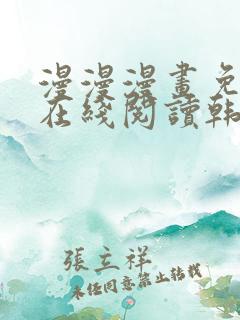 漫漫漫畫免
在綫閱讀韩
張立祥
未经同意禁止转载